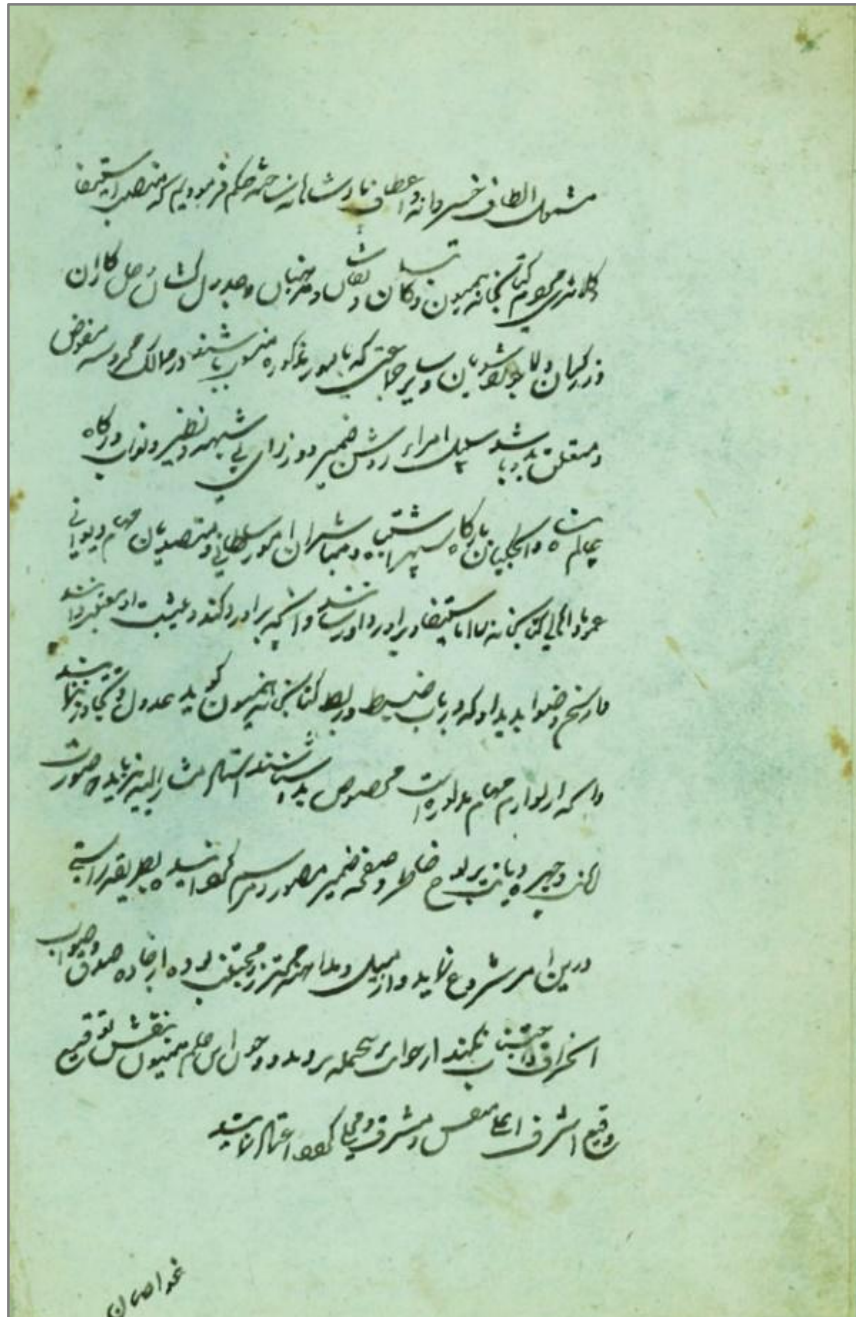 مشمول الطاف خسروانه و اعطاف پادشاهانه ساخته حکم فرمودیم که منصب استیفا
و کلانتری مردم کتابخانه همیون و کاتبان و نقاشان و مذهبان و جدول کشان و حل کاران
و زرکوبان و لاجورد شویان و سایر جماعتی که بامور مذکوره منسوب باشند در ممالک محروسه مفوض
و متعلق بدو باشد سبیل امراء روشن ضمیر و وزرای بی شبهه و نظیر و نواب درگاه
عالم پناه و ایلچیان بارگاه سپهر اشتباه و مباشران امور سلطانی و متصدیان مهام دیوانی
عموما و اهالی کتابخانه استیفا و برآورد او دانسته و آنچه برآورد کند و مثبت او معتبر دانند
و از سخن و صوابدید او که در باب ضبط و ربط کتابخانه همیون گوید عدول و تجاوز ننمایند
و آنچه از لوازم مهام مذکوره است مخصوص بدو شناسند استاد مشار الیه نیز باید که صورت
امانت و چهره دیانت بر لوح خاطر و صفحه ضمیر مصور و مرتسم گردانیده بطریقه راستی
درین امر شروع نماید و از میل و مداهنه محترز و مجتنب بوده از جاده صدق و صواب
انحراف و اجتناب نکند از جوانب برین جمله بروند و چون این حکم همیون بنقش توقیع
وقیع اشرف اعلی منقش و مشرف و محلی گردد اعتماد نمایند